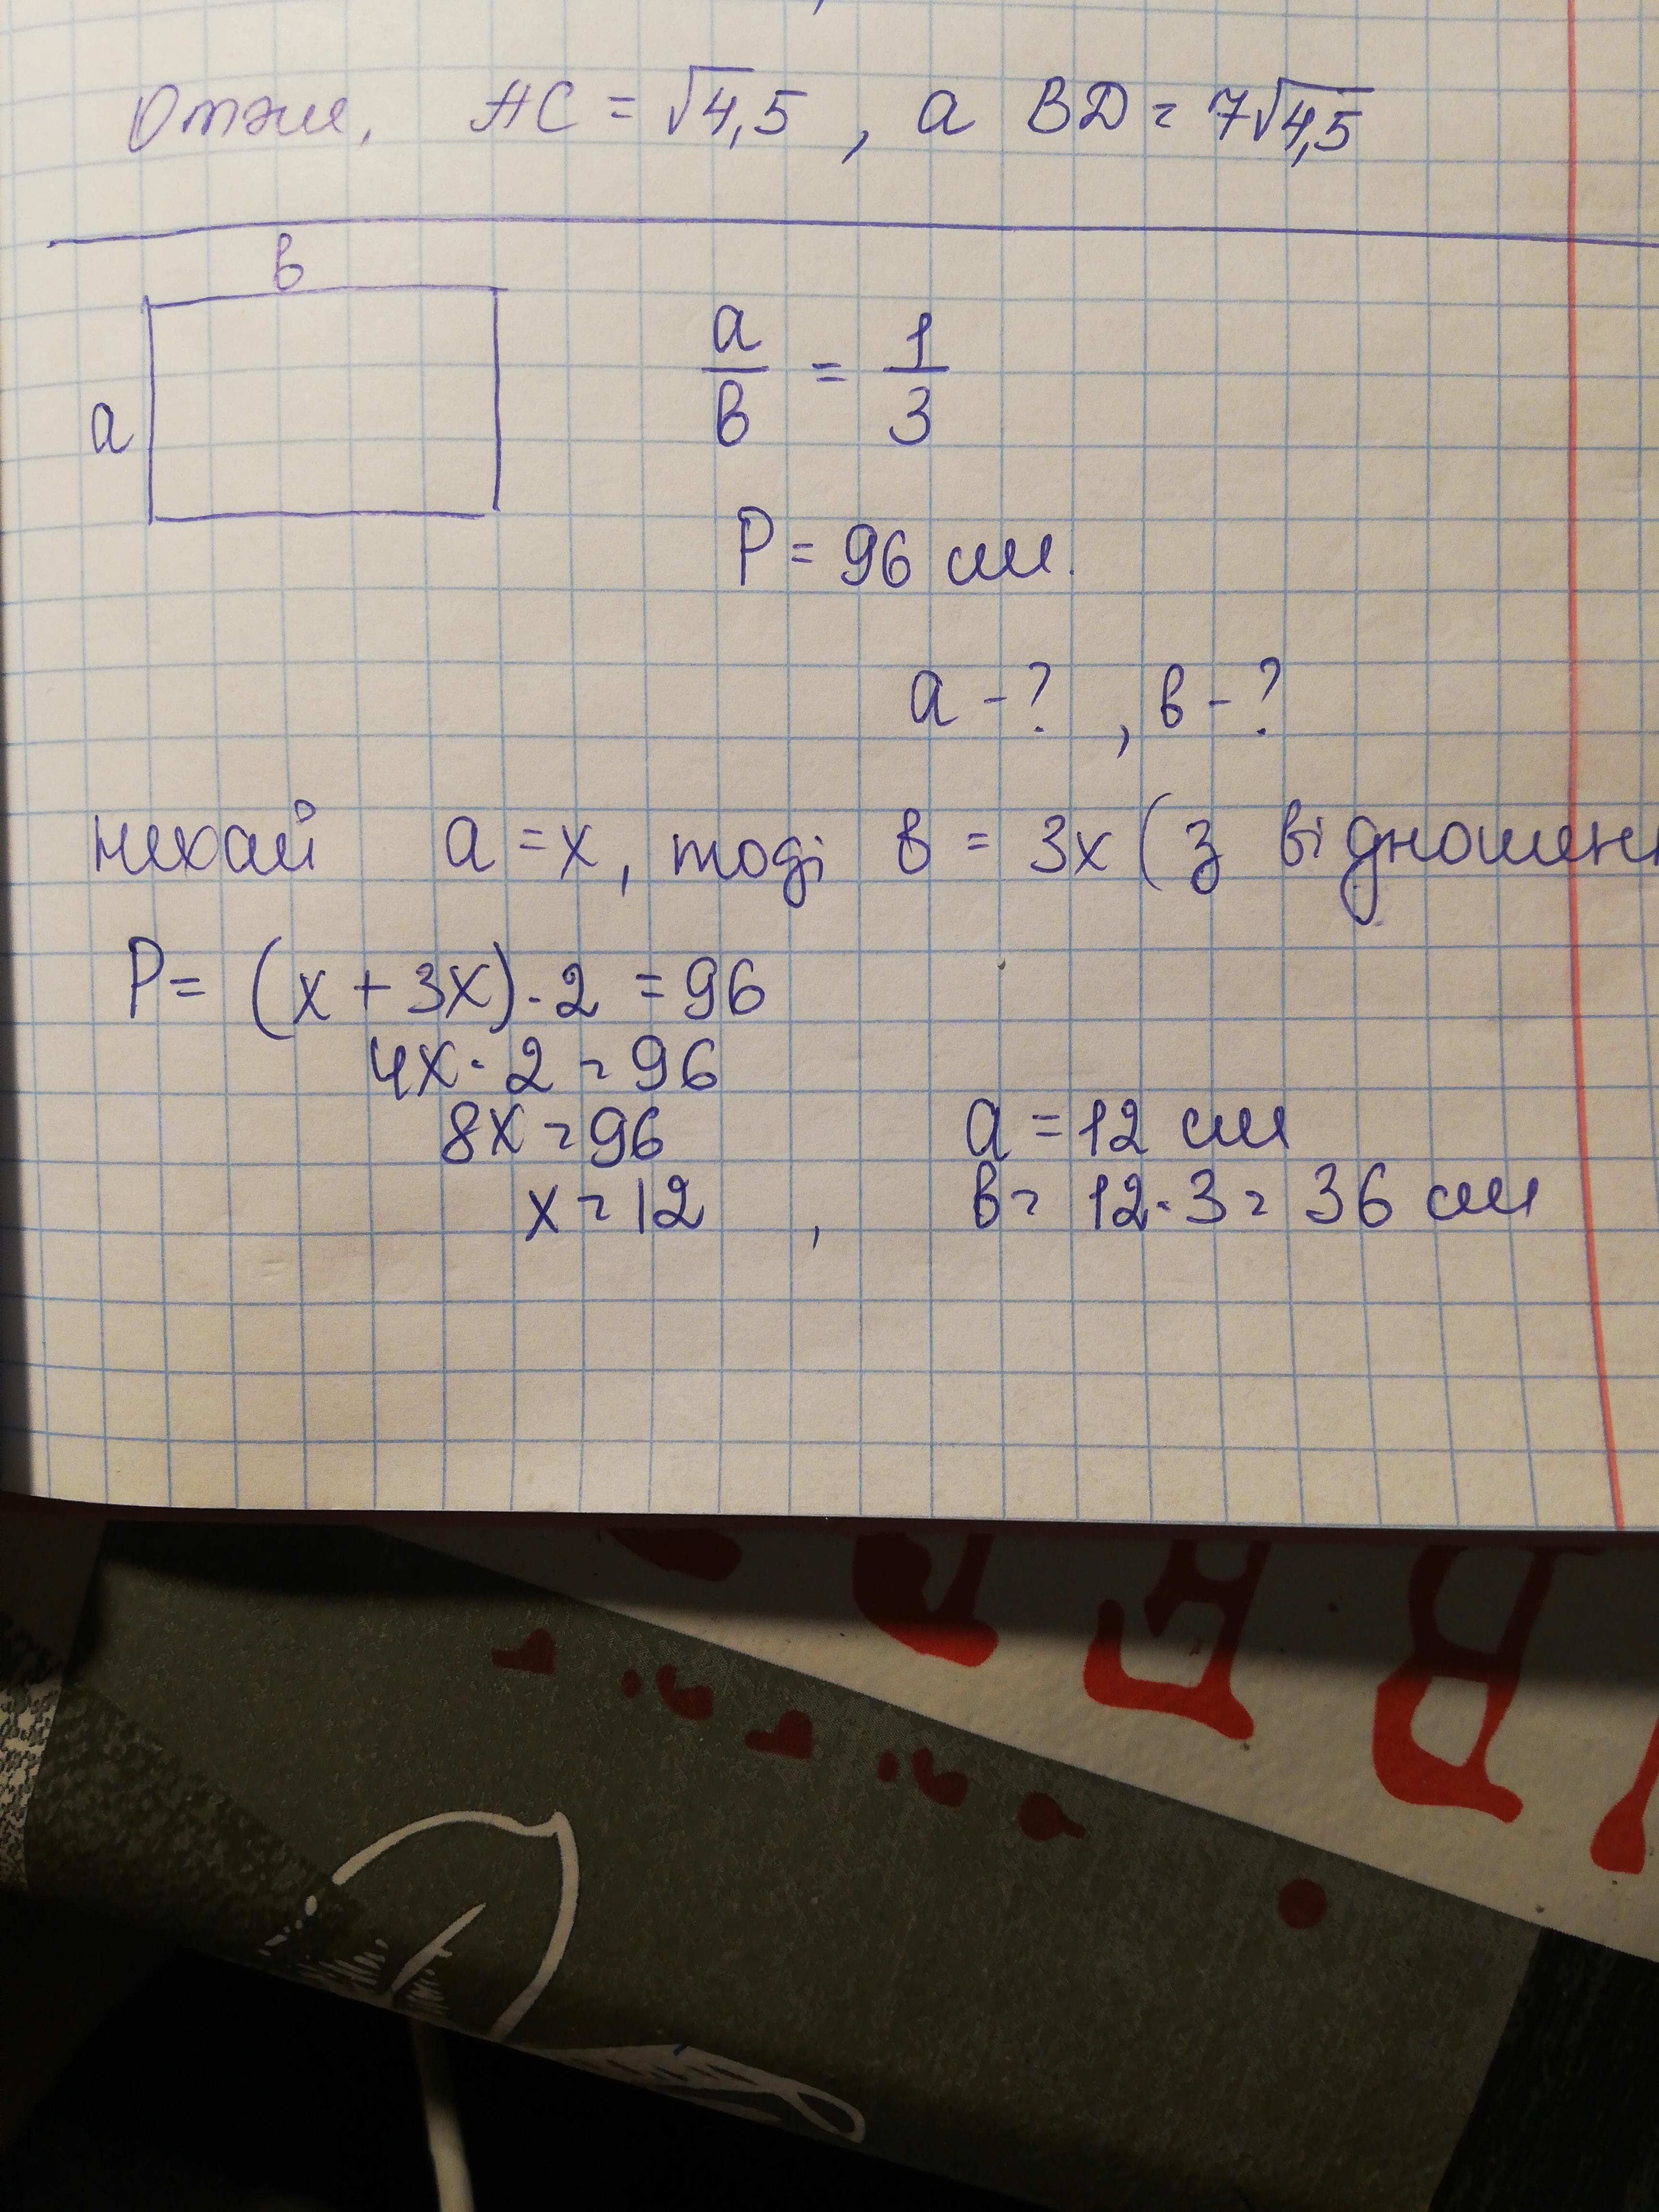 Отже, AC = √4,5 , а BD = 7√4,5
в
a
a/в = 1/3
P = 96 см.
a - ? , в - ?
нехай a = x, тоді в = 3x (з відношенн
P = (x + 3x) · 2 = 96
4x · 2 = 96
8x = 96
a = 12 см
x = 12 , в = 12 · 3 = 36 см